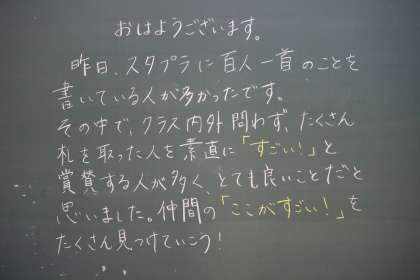 おはようございます。
昨日、スタプラに百人一首のことを
書いている人が多かったです。
その中で、クラス内外問わず、たくさん
札を取った人を素直に「すごい!」と
賞賛する人が多く、とても良いことだと
思いました。仲間の「ここがすごい!」を
たくさん見つけていこう!